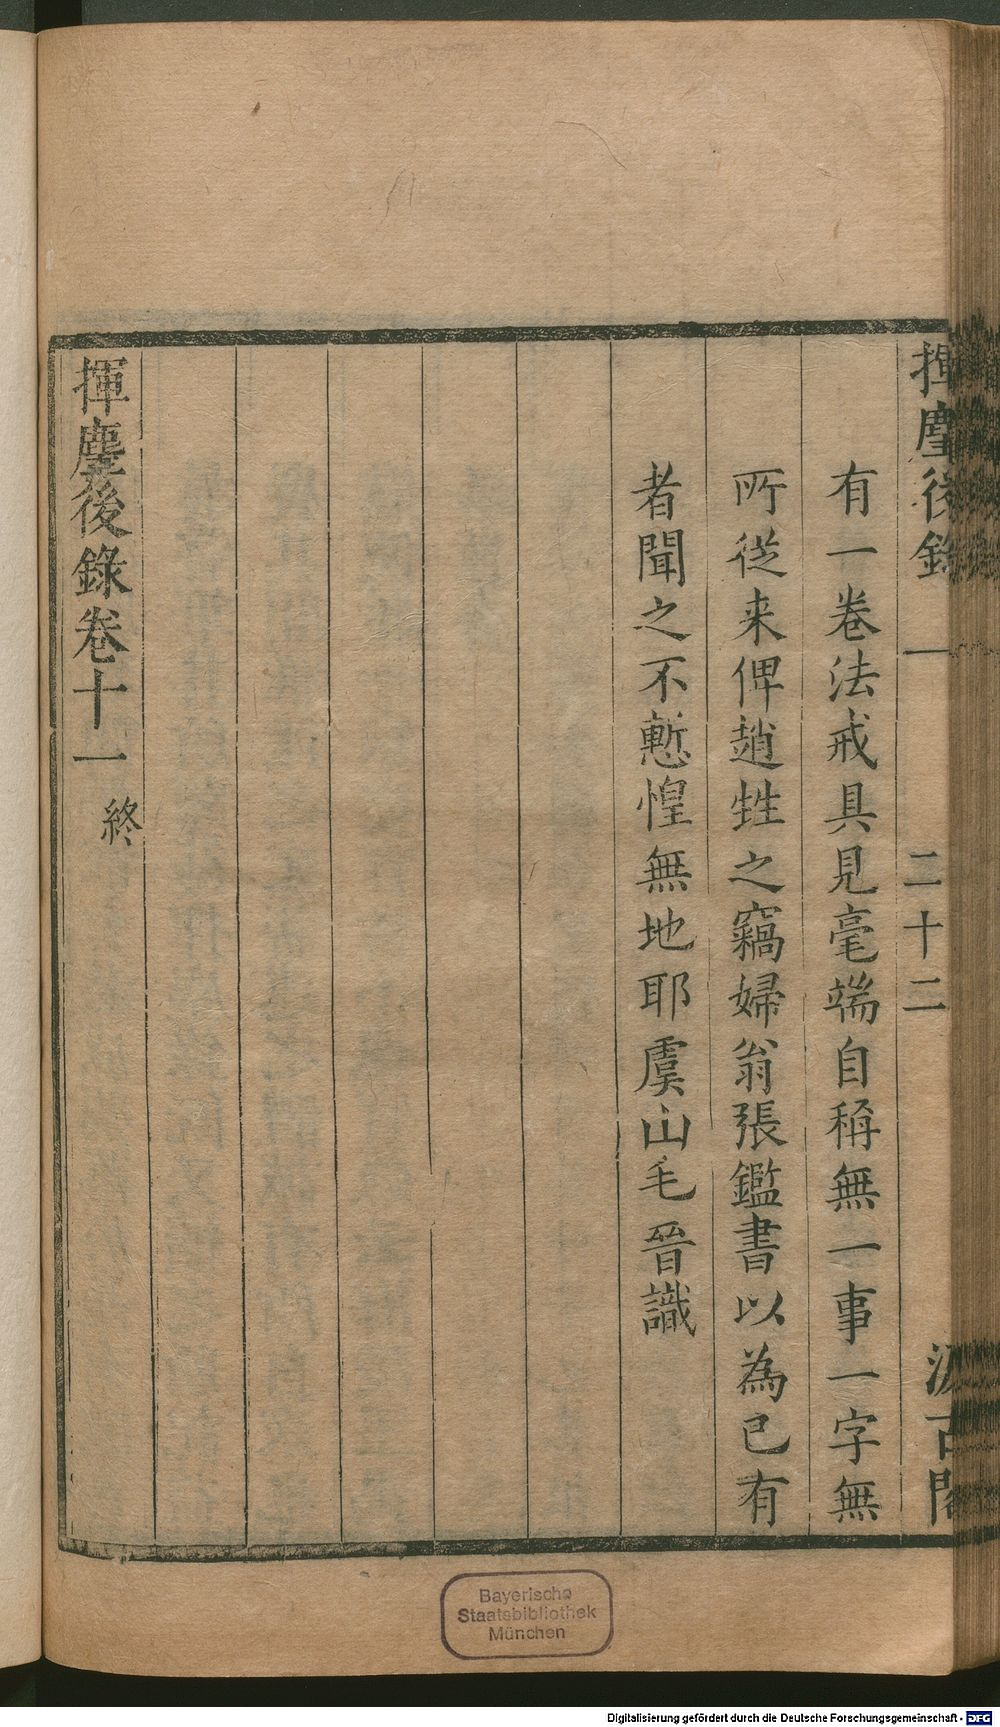 揮麈後錄 一 二十二 汲古閣
有一卷法戒具見毫端自稱無一事一字無
所從来俾趙甡之竊婦翁張鑑書以為已有
者聞之不慙惶無地耶虞山毛晉識
揮麈後錄卷十一 終
Bayerische
Staatsbibliothek
München
Digitalisierung gefördert durch die Deutsche Forschungsgemeinschaft - DFG